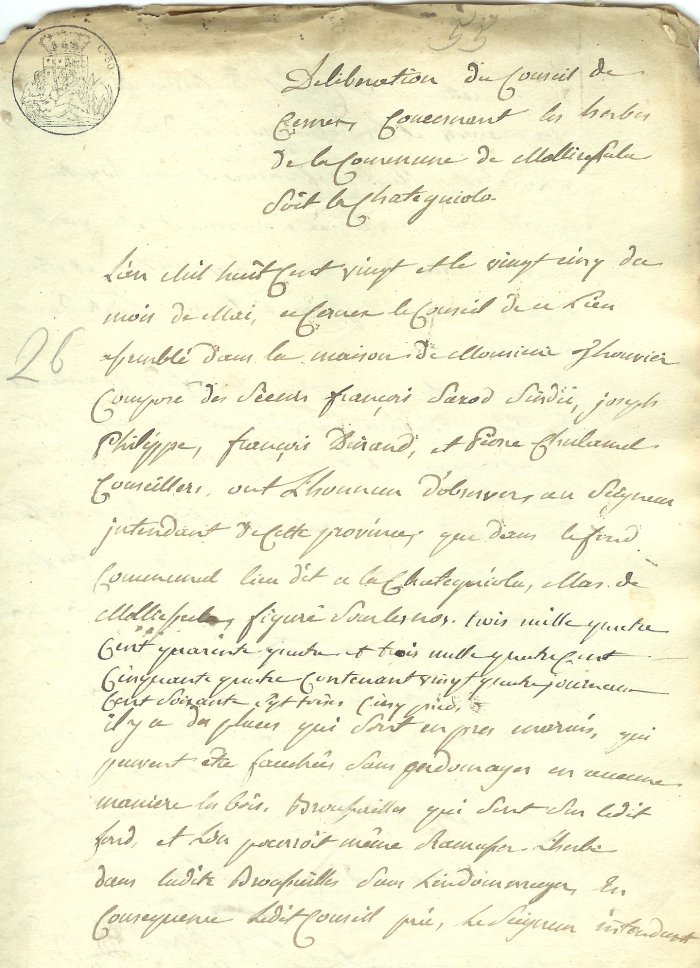 55
Deliberation du Conseil de
Cernex Concernant les herbes
de la Commune de Molliepela
Soit la Chategniola
26
L'an Mil huit Cent vingt et le vingt cinq du
mois de Mai, a Cernex le Conseil de ce Lieu
assemblé dans la maison de Monsieur
Composé des Sieurs françois Sindic, joseph
Philippe, françois Durand, et Pierre
Conseillers, ont L'honneur d'observer au Seigneur
intendant de Cette province, que dans le fond
Communal lieu dit a la Chategniola, Mas de
Molliepela, figuré Sous les nos. trois mille quatre
Cent quarante quatre et trois mille quatre Cent
Cinquante quatre Contenant vingt quatre journaux
Cent Soixante Sept toises Cinq pieds,
il y a des places qui Sont en pres marais, qui
peuvent être fauchées Sans endomager en aucune
maniere les bois, Broussailles qui Sont Sur ledit
fond, et L'on pourroit même Ramasser L'herbe
dans ladite Broussailles Sans L'endommager, En
Consequence Ledit Conseil prie, Le Seigneur intendant